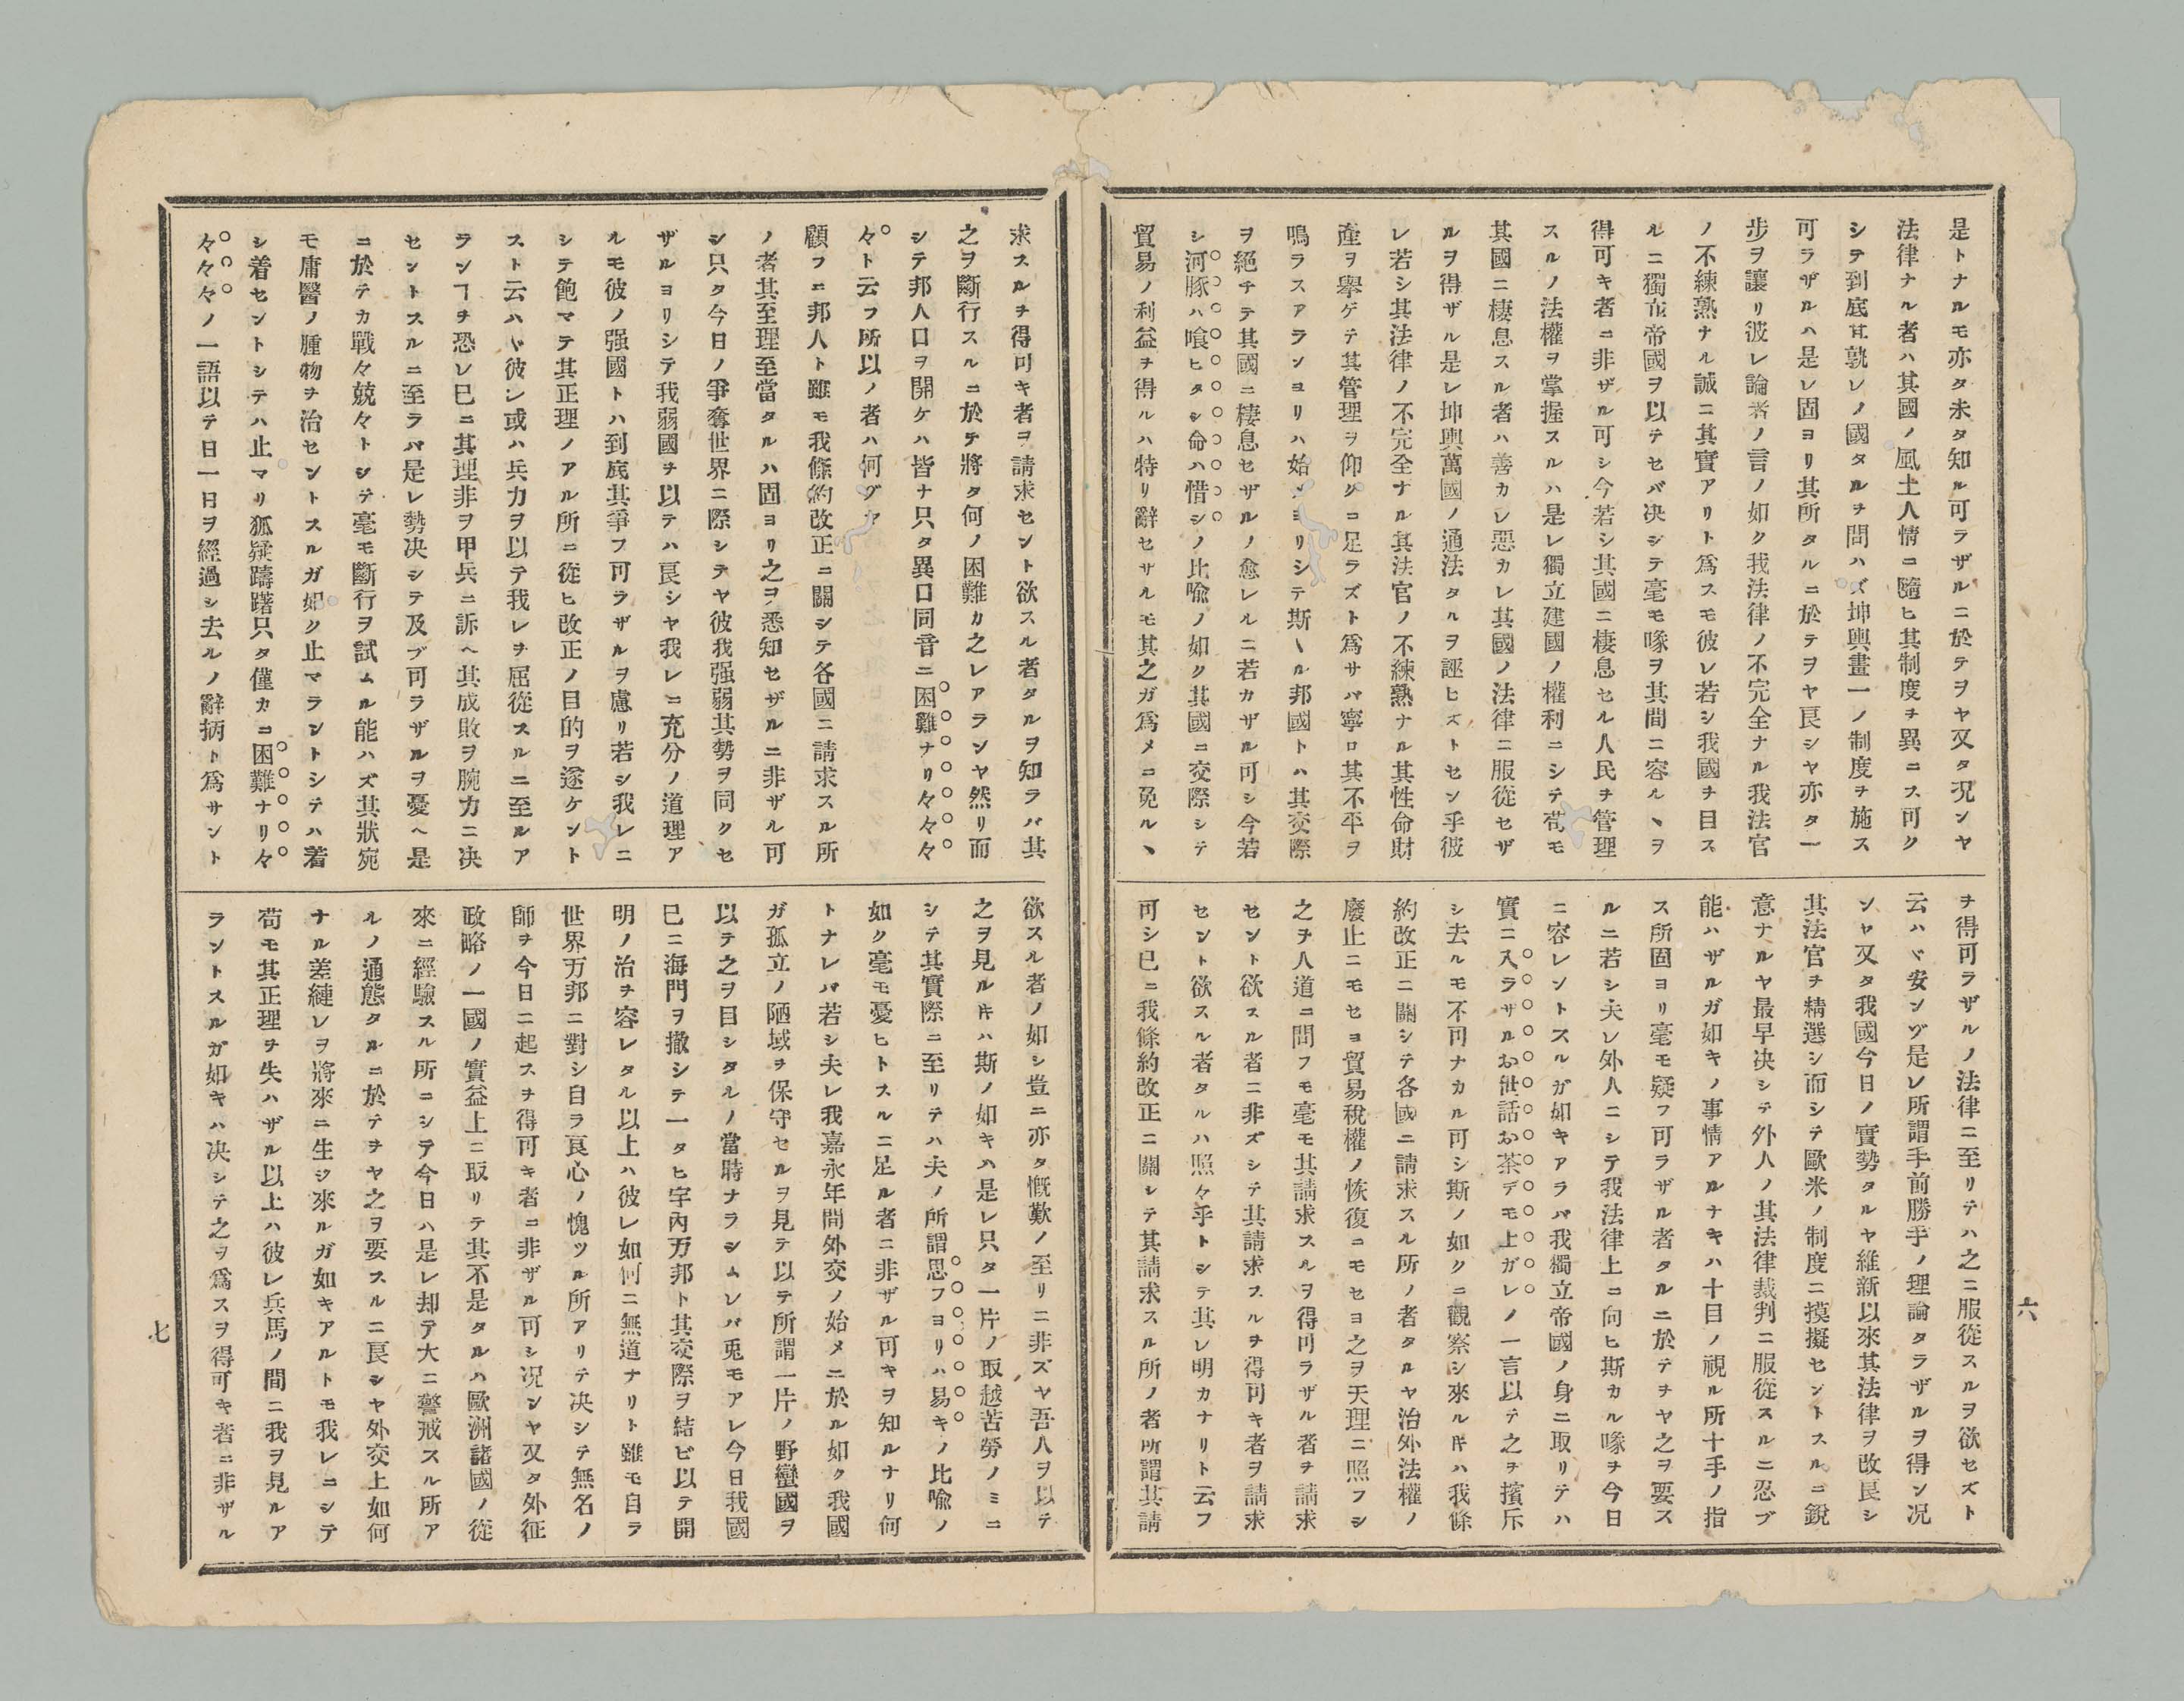 是トナルモ亦タ未タ知ル可ラザルニ於テヲヤ又タ况ンヤ
法律ナル者ハ其國ノ風土人情ニ隨ヒ其制度ヲ異ニス可ク
シテ到底其孰レノ國タルヲ問ハズ坤輿畫一ノ制度ヲ施ス
可ラザルハ是レ固ヨリ其所タルニ於テヲヤ良シヤ亦タ一
歩ヲ讓リ彼レ論者ノ言ノ如ク我法律ノ不完全ナル我法官
ノ不練熟ナル誠ニ其實アリト爲スモ彼レ若シ我國ヲ目ス
ルニ獨立帝國ヲ以テセバ决シテ毫モ喙ヲ其間ニ容ルヽヲ
得可キ者ニ非ザル可シ今若シ其國ニ棲息セル人民ヲ管理
スルノ法權ヲ掌握スルハ是レ獨立建國ノ權利ニシテ苟モ
其國ニ棲息スル者ハ善カレ惡カレ其國ノ法律ニ服從セザ
ルヲ得ザル是レ坤輿萬國ノ通法タルヲ誣ヒズトセン乎彼
レ若シ其法律ノ不完全ナル其法官ノ不練熟ナル其性命財
產ヲ舉ゲテ其管理ヲ仰クニ足ラズト爲サバ寧ロ其不平ヲ
鳴ラスアランヨリハ始メヨリシテ斯ヽル邦國トハ其交際
ヲ絕チテ其國ニ棲息セザルノ愈レルニ若カザル可シ今若
シ河豚ハ喰ヒタシ命ハ惜シノ比喩ノ如ク其國ニ交際シテ
貿易ノ利益ヲ得ルハ特リ辭セザルモ其之ガ爲メニ免ルヽ
ヲ得可ラザルノ法律ニ至リテハ之ニ服從スルヲ欲セズト
云ハヾ安ンゾ是レ所謂手前勝手ノ理論タラザルヲ得ン况
ンヤ又タ我國今日ノ實勢タルヤ維新以來其法律ヲ改良シ
其法官ヲ精選シ而シテ歐米ノ制度ニ摸擬セントスルニ銳
意ナルヤ最早决シテ外人ノ其法律裁判ニ服從スルニ忍ブ
能ハザルガ如キノ事情アルナキハ十目ノ視ル所十手ノ指
ス所固ヨリ毫モ疑フ可ラザル者タルニ於テヲヤ之ヲ要ス
ルニ若シ夫レ外人ニシテ我法律上ニ向ヒ斯カル喙ヲ今日
ニ容レントスルガ如キアラバ我獨立帝國ノ身ニ取リテハ
實ニ入ラザルお世話お茶デモ上ガレノ一言以テ之ヲ擯斥
シ去ルモ不可ナカル可シ斯ノ如クニ觀察シ來ルㇻハ我條
約改正ニ關シテ各國ニ請求スル所ノ者タルヤ治外法權ノ
廢止ニモセヨ貿易稅權ノ恢復ニモセヨ之ヲ天理ニ照フシ
之ヲ人道ニ問フモ毫モ其請求スルヲ得可ラザル者ヲ請求
セント欲スル者ニ非ズシテ其請求スルヲ得可キ者ヲ請求
セント欲スル者タルハ照々乎トシテ其レ明カナリト云フ
可シ已ニ我條約改正ニ關シテ其請求スル所ノ者所謂其請
六
求スルヲ得可キ者ヲ請求セント欲スル者タルヲ知ラバ其
之ヲ斷行スルニ於テ將タ何ノ困難カ之レアランヤ然リ而
シテ邦人口ヲ開ケハ皆ナ只タ異口同音ニ困難ナリ々々々
々ト云フ所以ノ者ハ何ゾヤ
顧フニ邦人ト雖モ我條約改正ニ關シテ各國ニ請求スル所
ノ者其至理至當タルハ固ヨリ之ヲ悉知セザルニ非ザル可
シ只タ今日ノ爭奪世界ニ際シテヤ彼我强弱其勢ヲ同クセ
ザルヨリシテ我弱國ヲ以テハ良シヤ我レニ充分ノ道理ア
ルモ彼ノ强國トハ到底其爭フ可ラザルヲ慮リ若シ我レニ
シテ飽マテ其正理ノアル所ニ從ヒ改正ノ目的ヲ遂ケント
スト云ハヾ彼レ或ハ兵力ヲ以テ我レヲ屈從スルニ至ルア
ランヿヲ恐レ已ニ其理非ヲ甲兵ニ訴ヘ其成敗ヲ腕力ニ决
セントスルニ至ラバ是レ勢决シテ及ブ可ラザルヲ憂ヘ是
ニ於テカ戰々兢々トシテ毫モ斷行ヲ試ムル能ハズ其狀宛
モ庸醫ノ腫物ヲ治セントスルガ如ク止マラントシテハ着
シ着セントシテハ止マリ狐疑躊躇只タ僅カニ困難ナリ々
々々々ノ一語以テ日一日ヲ經過シ去ルノ辭柄ト爲サント
欲スル者ノ如シ豈ニ亦タ慨歎ノ至リニ非ズヤ吾人ヲ以テ
之ヲ見ルㇻハ斯ノ如キハ是レ只タ一片ノ取越苦勞ノミニ
シテ其實際ニ至リテハ夫ノ所謂思フヨリハ易キノ比喩ノ
如ク毫モ憂ヒトスルニ足ル者ニ非ザル可キヲ知ルナリ何
トナレバ若シ夫レ我嘉永年間外交ノ始メニ於ル如ク我國
ガ孤立ノ陋域ヲ保守セルヲ見テ以テ所謂一片ノ野蠻國ヲ
以テ之ヲ目シタルノ當時ナラシムレバ兎モアレ今日我國
已ニ海門ヲ撤シテ一タヒ宇內万邦ト其交際ヲ結ビ以テ開
明ノ治ヲ容レタル以上ハ彼レ如何ニ無道ナリト雖モ自ラ
世界万邦ニ對シ自ラ良心ノ愧ツル所アリテ决シテ無名ノ
師ヲ今日ニ起スヲ得可キ者ニ非ザル可シ况ンヤ又タ外征
政略ノ一國ノ實益上ニ取リテ其不是タルハ歐洲諸國ノ從
來ニ經驗スル所ニシテ今日ハ是レ却テ大ニ警戒スル所ア
ルノ通態タルニ於テヲヤ之ヲ要スルニ良シヤ外交上如何
ナル差縺レヲ將來ニ生ジ來ルガ如キアルトモ我レニシテ
苟モ其正理ヲ失ハザル以上ハ彼レ兵馬ノ間ニ我ヲ見ルア
ラントスルガ如キハ决シテ之ヲ爲スヲ得可キ者ニ非ザル
七